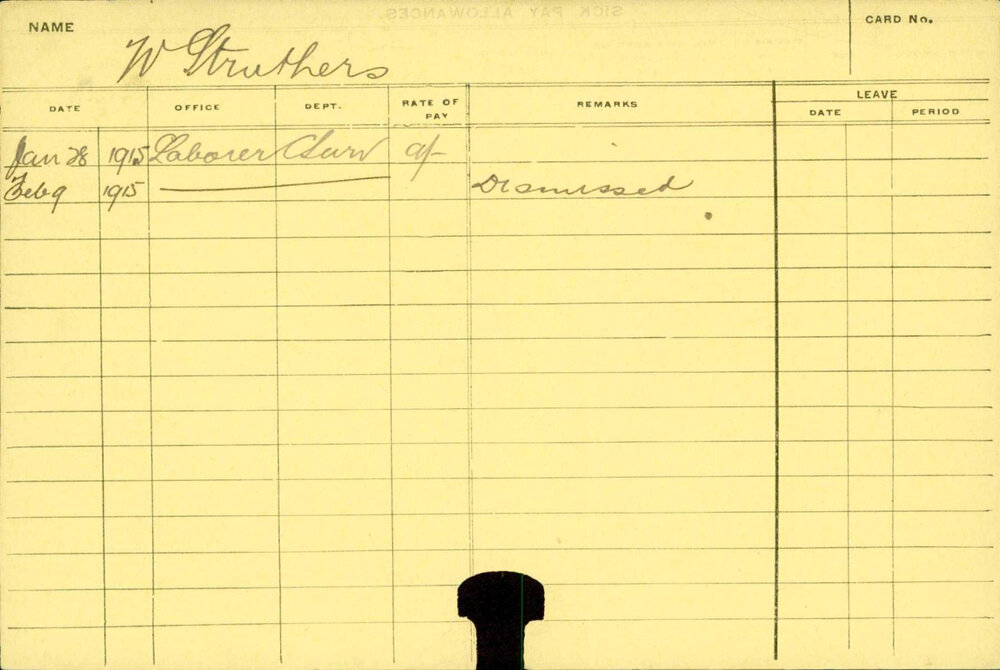 SICK PAY ALLOWANCES
NAME W Struthers
CARD No.
DATE OFFICE DEPT. RATE OF PAY REMARKS LEAVE
DATE PERIOD
Jan 28 1915 Laborer 9/-
Feb 9 1915 Dismissed